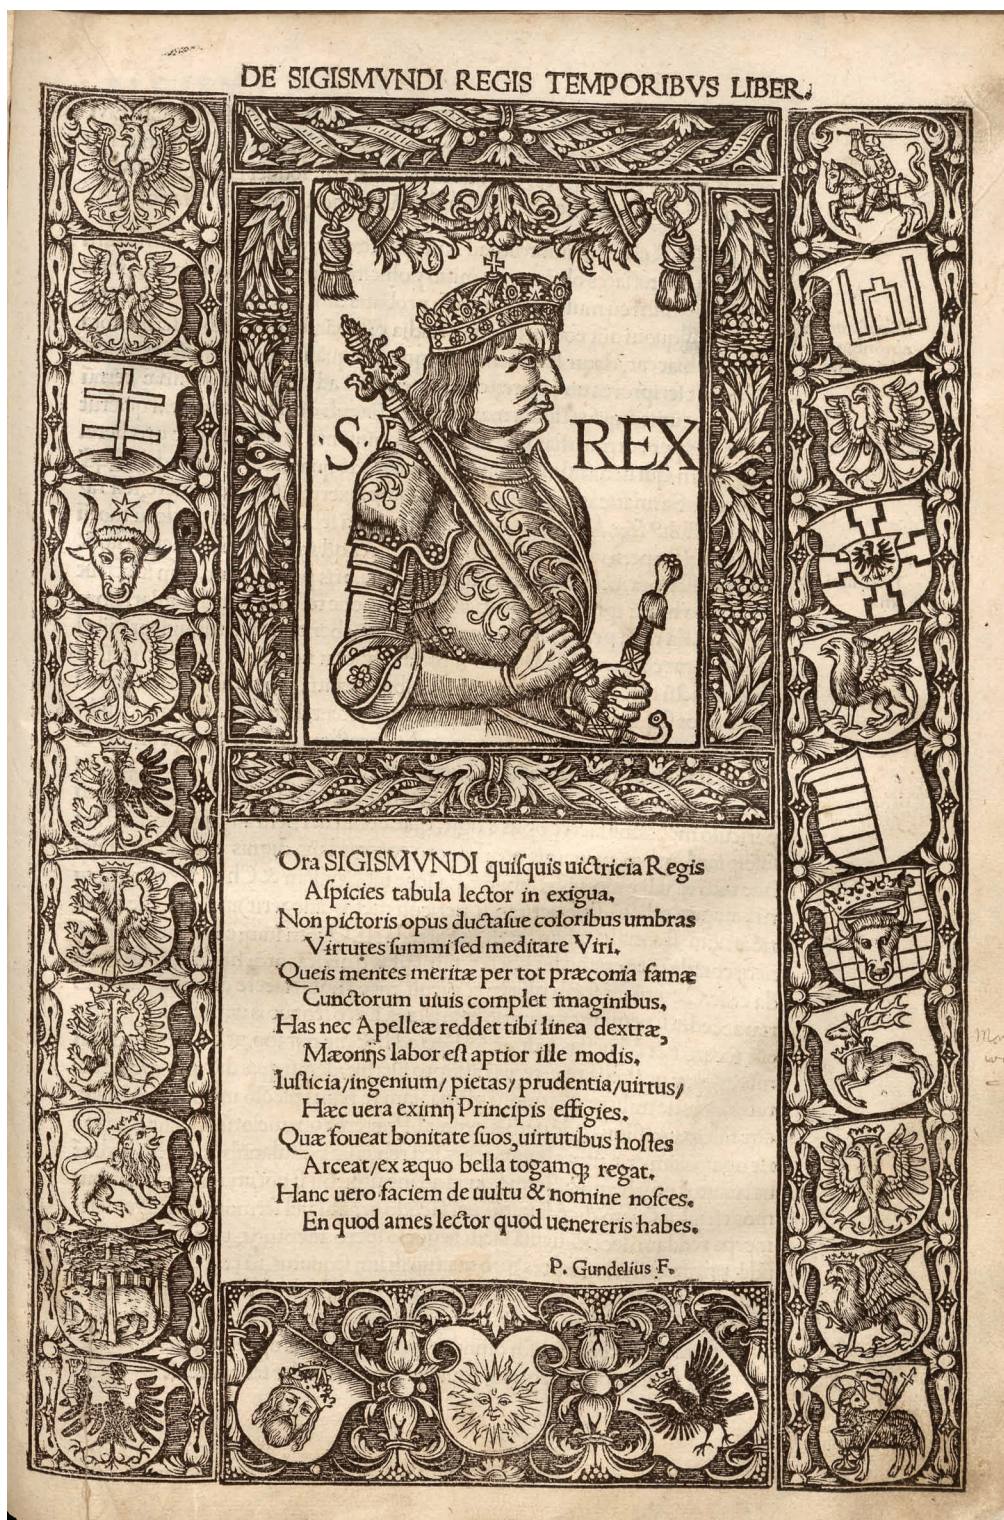 DE SIGISMVNDI REGIS TEMPORIBVS LIBER.
·S· REX
Ora SIGISMVNDI quiſquis uictricia Regis
Aſpicies tabula lector in exigua.
Non pictoris opus ductaſue coloribus umbras
Virtutes ſummi ſed meditare Viri.
Queis mentes meritæ per tot præconia famæ
Cunctorum uiuis complet imaginibus.
Has nec Apelleæ reddet tibi linea dextræ,
Mæonijs labor eſt aptior ille modis.
Iuſticia/ingenium/pietas/prudentia/uirtus/
Hæc uera eximij Principis effigies.
Quæ foueat bonitate ſuos,uirtutibus hoſtes
Arceat/ex æquo bella togamqꝫ regat.
Hanc uero faciem de uultu & nomine noſces.
En quod ames lector quod uenereris habes.
P. Gundelius F.